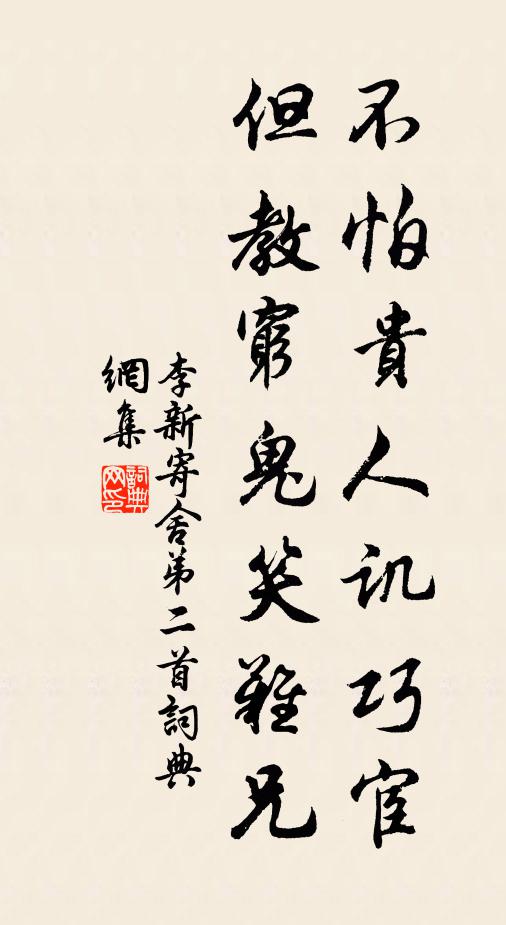 不怕貴人訊巧宦
但教窮鬼笑難兄
李新寄舍弟二首詞典
網集
詞典
網印